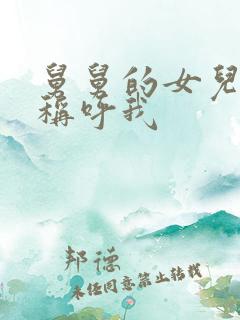 舅舅的女兒
稱呼我
邦德
未经同意禁止转载